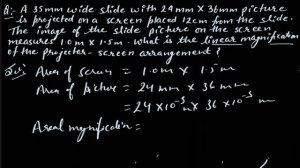 Q:- A 35mm wide slide with 24mm X 36mm picture
is projected on a screen placed 12cm from the slide.
The image of the slide picture on the screen
measures 1.0m X 1.5m. what is the linear magnification
of the projector-screen arrangement?
Area of screen = 1.0m X 1.5m
Area of picture = 24 mm X 36 mm
= 24 X 10⁻³ X 36 X 10⁻³ m
Areal magnification =